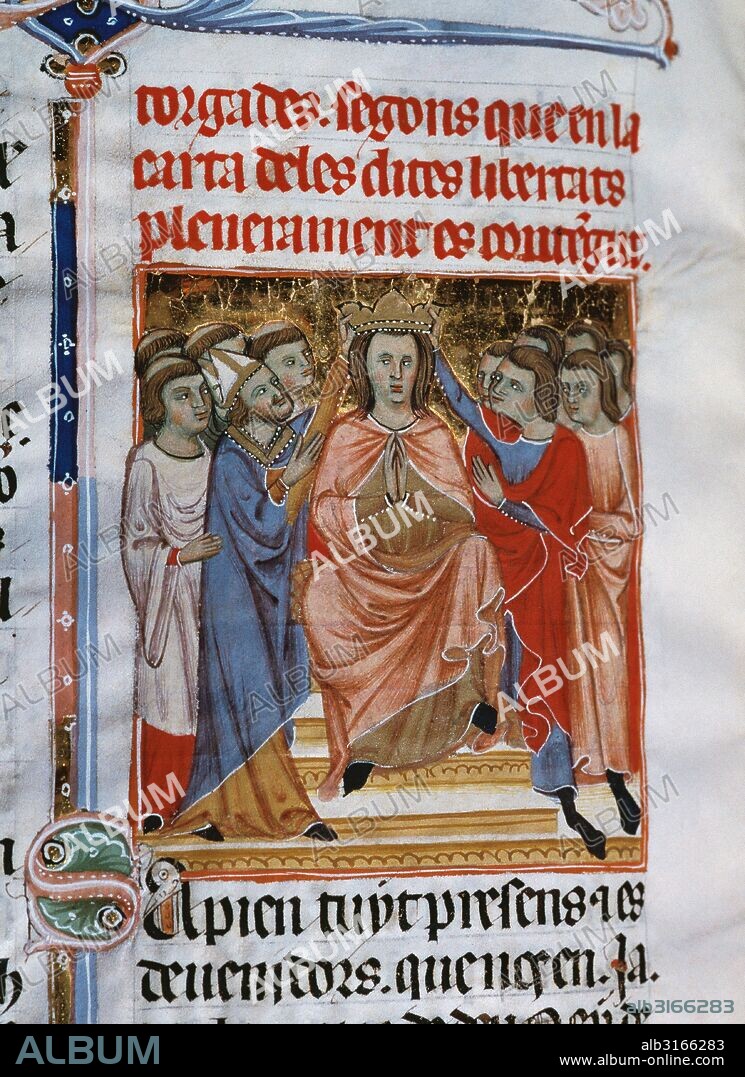 torgades. segons que en la
carta deles dites libertats
plenerament es conte̅gut.
Sapien tuyt presens ⁊ es
deuenidors. que nos en. Ja.
alb3166283
ALBUM
alb3166283
www.album-online.com